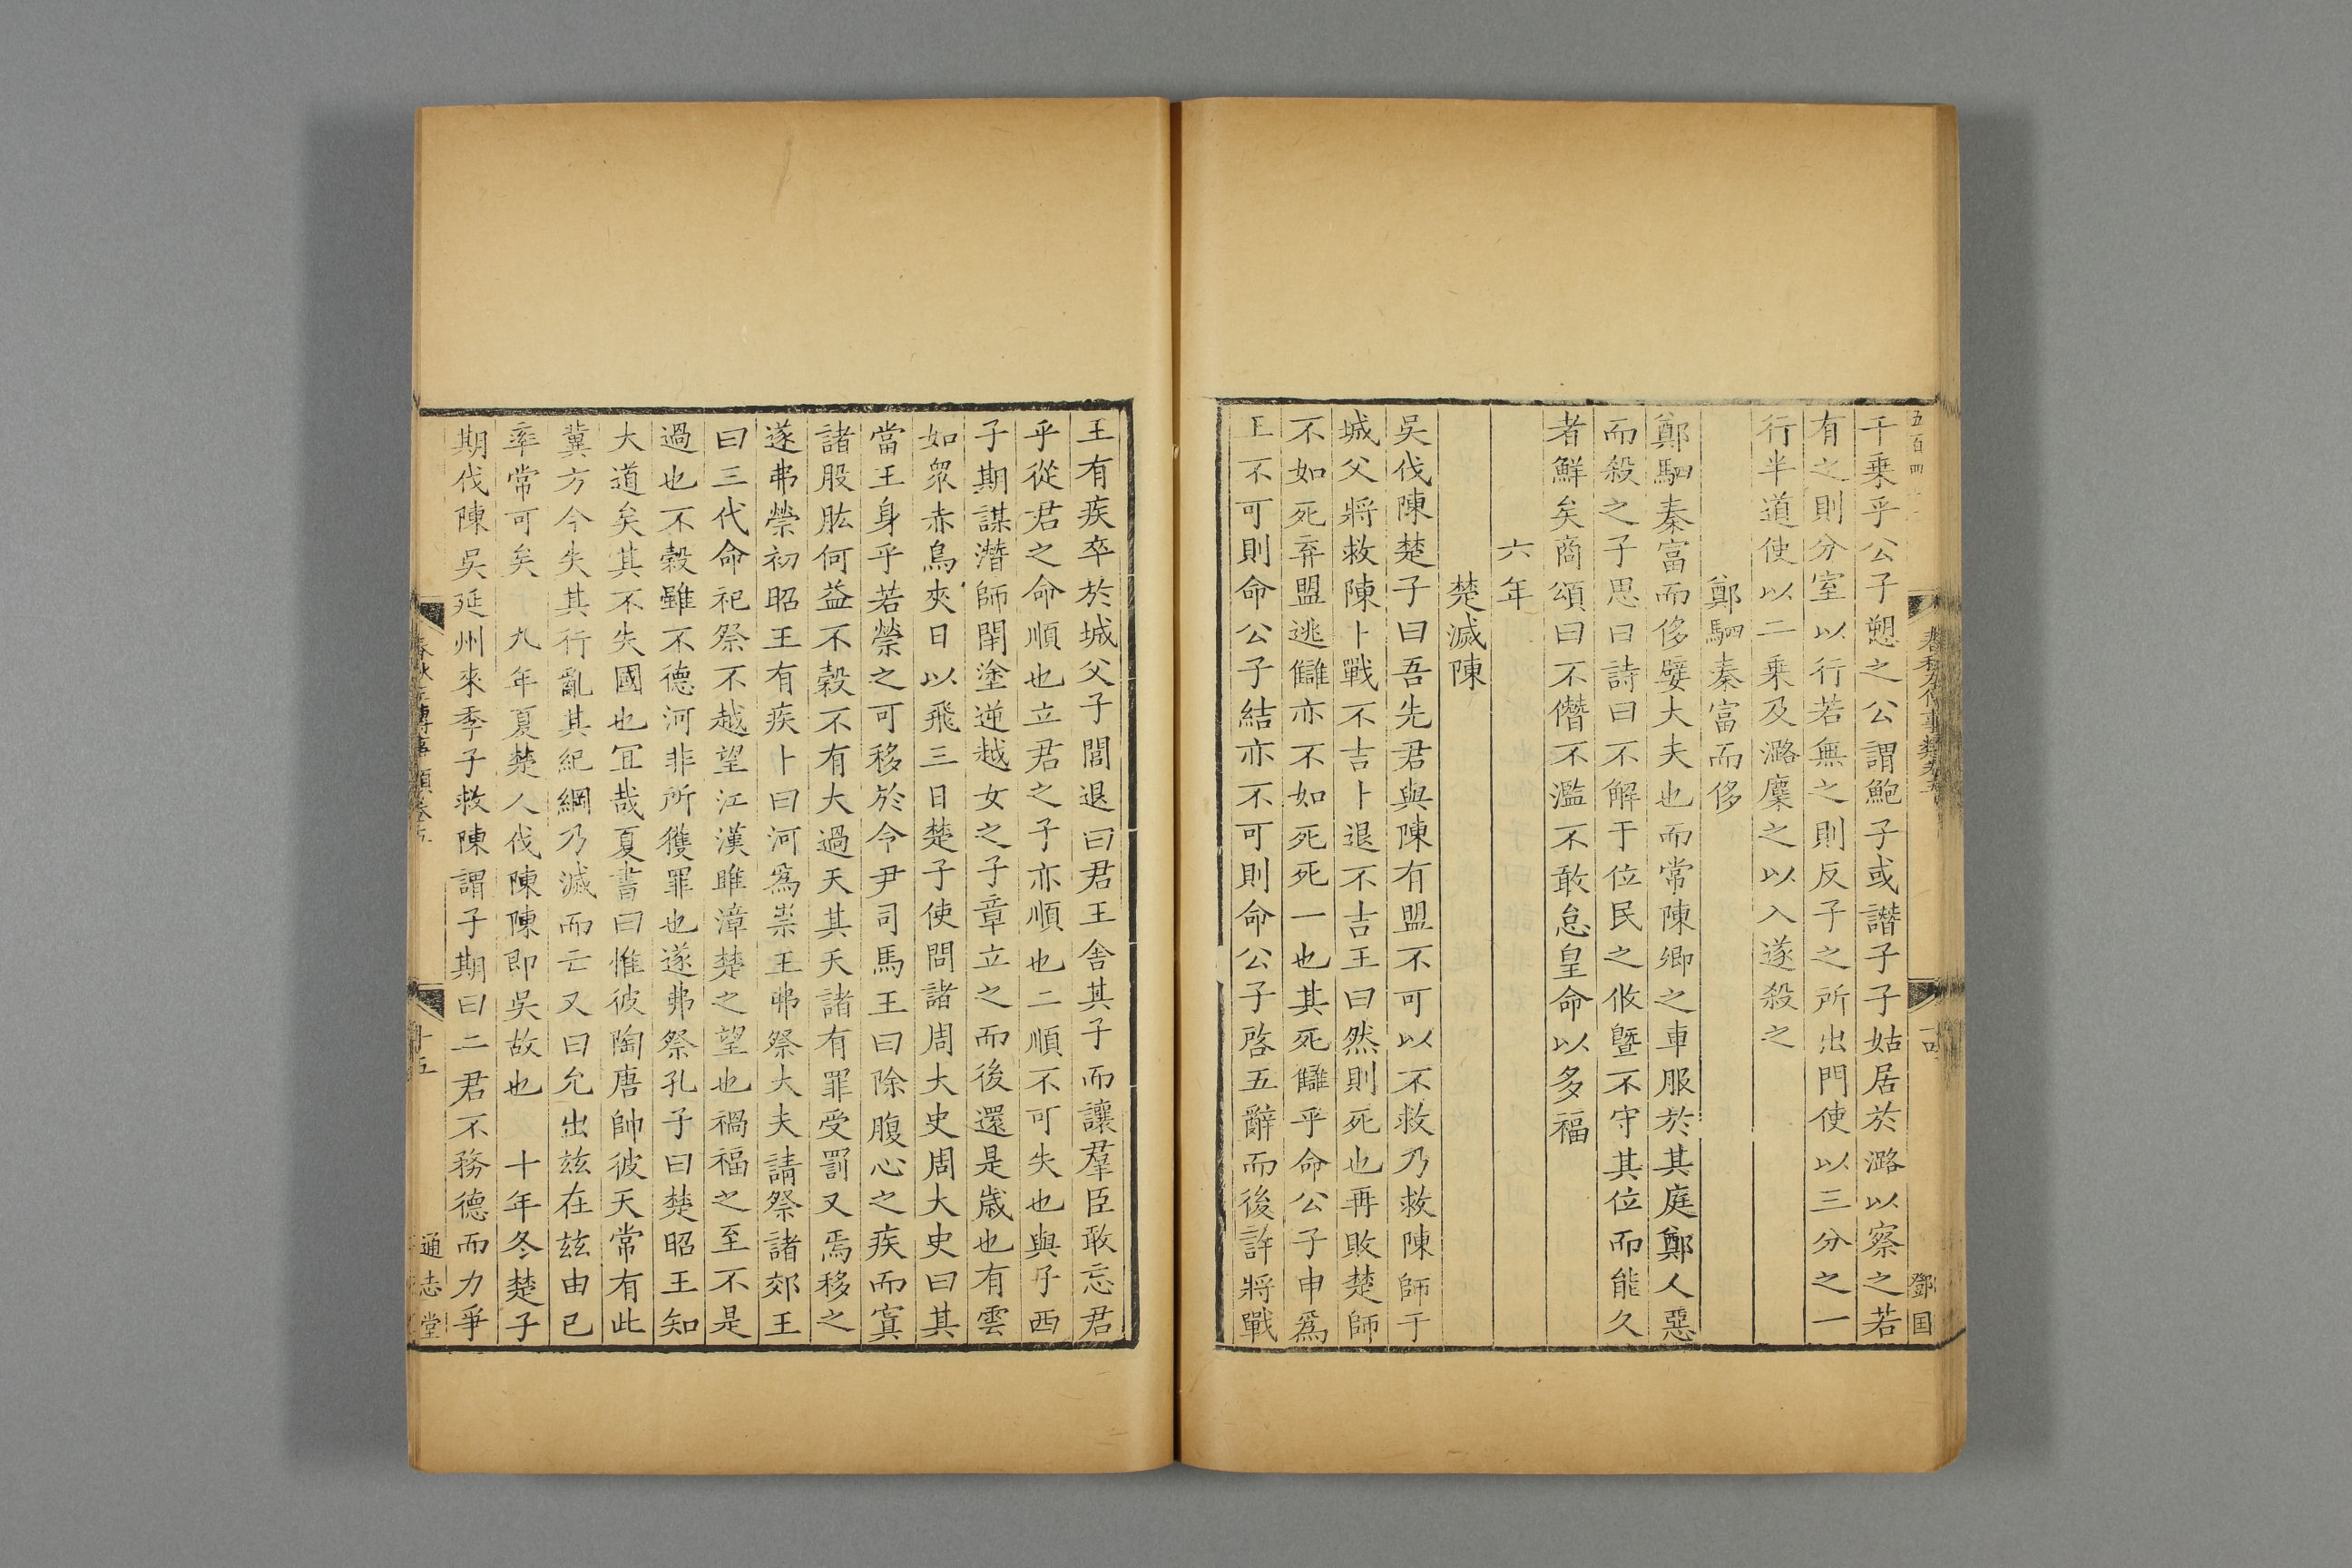 五百四
千乗乎公子愬之公謂鮑子或譖子子姑居於潞以察之若
有之則分室以行若無之則反子之所出門使以三分之一
行半道使以二乗及潞麇之以入遂殺之
鄭駟秦富而侈
鄭駟秦富而侈嬖大夫也而常陳卿之車服於其庭鄭人惡
而殺之子思曰詩曰不解于位民之攸曁不守其位而能久
者鮮矣商頌曰不僭不濫不敢怠皇命以多福
六年
楚滅陳
吳伐陳楚子曰吾先君與陳有盟不可以不救乃救陳師于
城父將救陳卜戰不吉卜退不吉王曰然則死也再敗楚師
不如死弃盟逃讎亦不如死死一也其死讎乎命公子申爲
王不可則命公子結亦不可則命公子啓五辭而後許將戰
王有疾卒於城父子閭退曰君王舍其子而讓羣臣敢忘君
乎從君之命順也立君之子亦順也二順不可失也與子西
子期謀潛師閉塗逆越女之子章立之而後還是歳也有雲
如衆赤鳥夾日以飛三日楚子使問諸周大史周大史曰其
當王身乎若禜之可移於令尹司馬王曰除腹心之疾而寘
諸股肱何益不穀不有大過天其夭諸有罪受罰又焉移之
遂弗禜初昭王有疾卜曰河爲祟王弗祭大夫請祭諸郊王
曰三代命祀祭不越望江漢雎漳楚之望也禍福之至不是
過也不穀雖不德河非所獲罪也遂弗祭孔子曰楚昭王知
大道矣其不失國也宜哉夏書曰惟彼陶唐帥彼天常有此
冀方今失其行亂其紀綱乃滅而亡又曰允出兹在兹由已
率常可矣 九年夏楚人伐陳陳即吳故也 十年冬楚子
期伐陳吳延州來季子救陳謂子期曰二君不務德而力爭
春秋左傳事類卷五
十五
通志堂